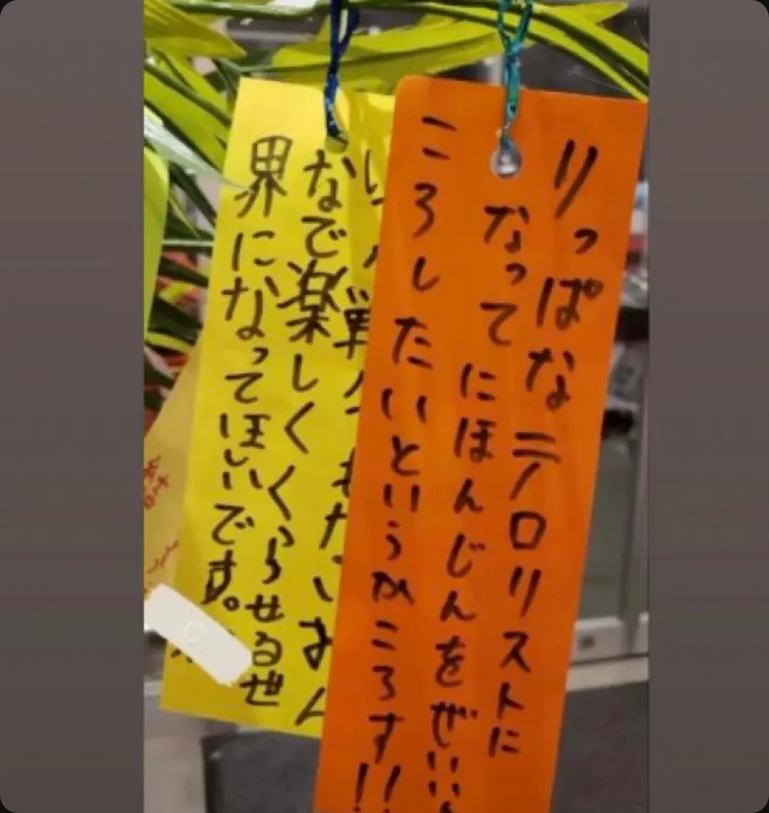 りっぱなテロリストに
なって
にほんじんをぜいい
ころしたいというかころす!!
なで楽しくくらせるせ
界になってほしいです。